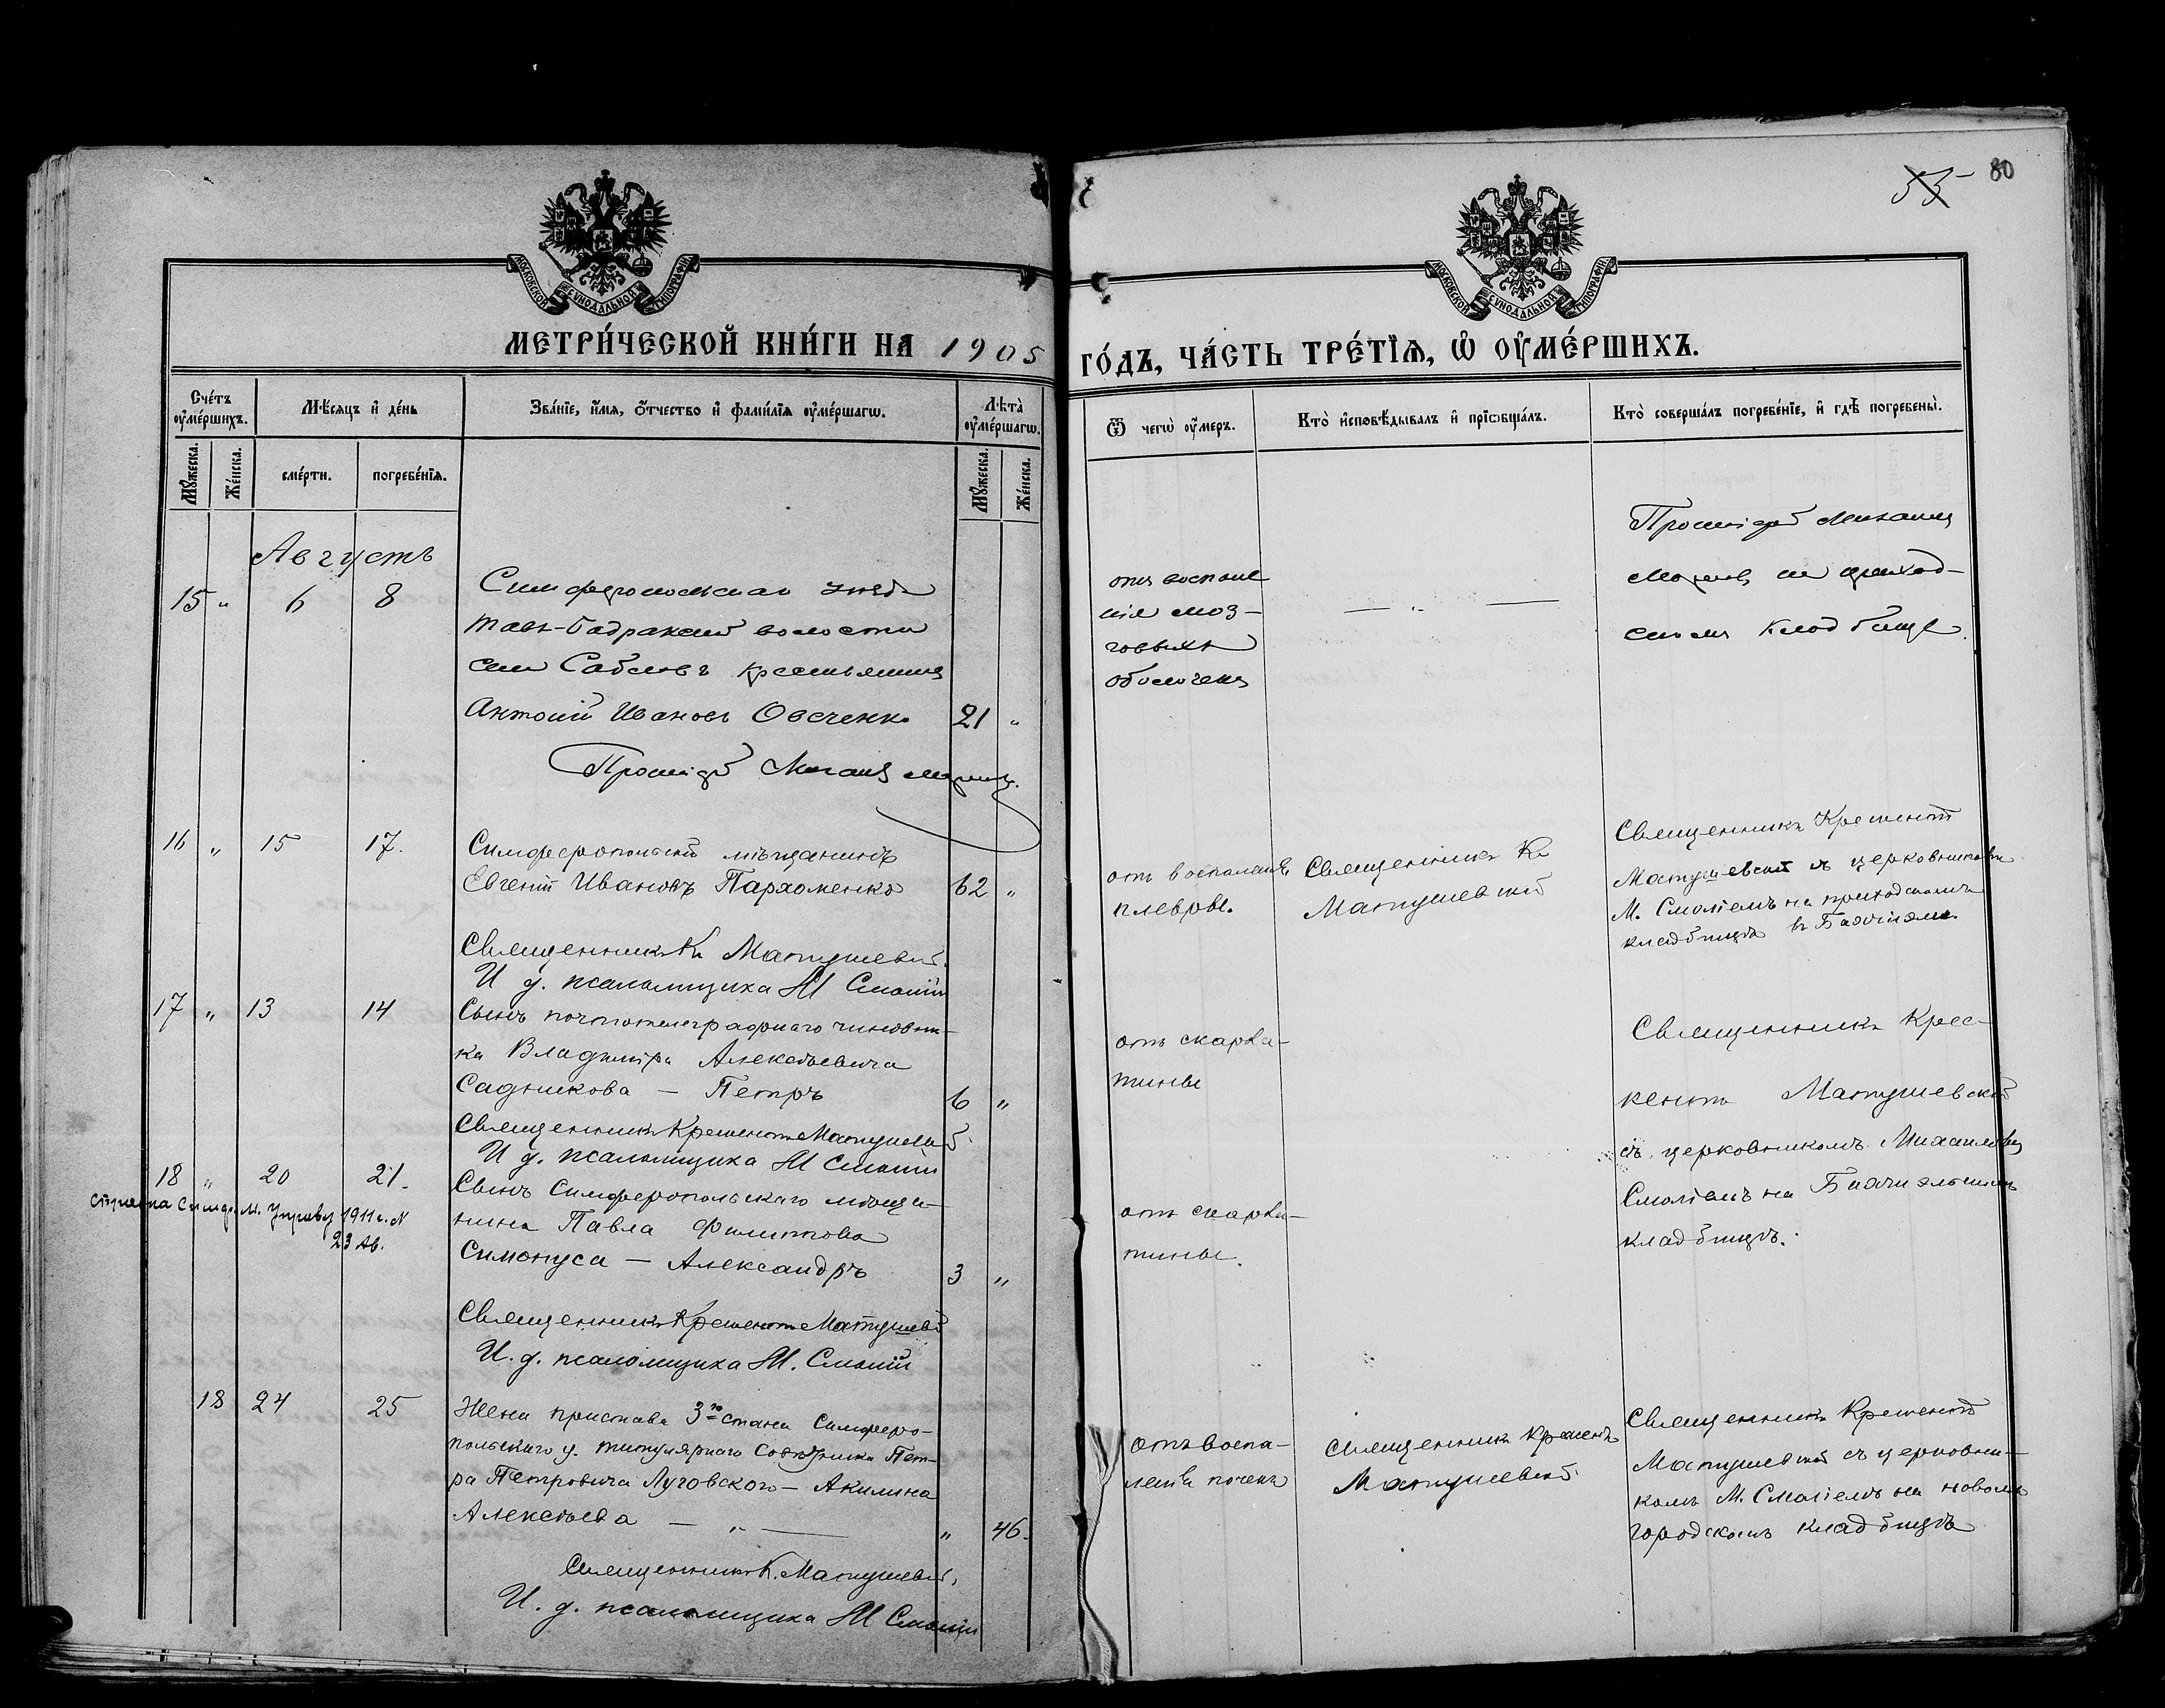 80
53
МОСКОВСКОЙ СѴНОДАЛЬНОЙ ТИПОГРАФІИ
МОСКОВСКОЙ СѴНОДАЛЬНОЙ ТИПОГРАФІИ
МЕТРИ́ЧЕСКОЙ КНИ́ГИ НА 1905
ГО́ДЪ, ЧА́СТЬ ТРЕ́ТЇѦ, Ѡ҆ ОУ҆МЕ́РШИХЪ.
Сче́тъ оу҆ме́ршихъ.
Мѣ́сяцъ и҆ де́нь
Зва́нїе, и҆́мя, ѻ҆́тчество и҆ фами́лїя оу҆ме́ршагѡ.
Лѣта̀ оу҆ме́ршагѡ.
Ѿ чегѡ̀ оу҆́меръ.
Кто̀ и҆сповѣ́дывалъ и҆ прїѡбща́лъ.
Кто̀ соверша́лъ погребе́нїе, и҆ гдѣ̀ погребены̀.
Мꙋ́жеска.
Же́нска.
сме́рти.
погребе́нїя.
Мꙋ́жеска.
Же́нска.
Августъ
15 " 6 8
Симферопольскаго уезда
Тавъ-Бадракской волости
села Сабловъ крестьянинъ
Антоній Ивановъ Овсченко 21 "
Протоіерей Михаилъ
отъ воспале
нія моз-
говыхъ
оболочекъ
— " —
Протоіерей Михаилъ
на приход-
скомъ кладбище.
16 " 15 17.
Симферопольскій мѣщанинъ
Евгеній Ивановъ Пархоменко 62 "
Священникъ К Матушевскій.
И д. псаломщика М Смолій
отъ воспаленія
плевры.
Священникъ Кл
Матушевскій
Священникъ Климентъ
Матушевскій съ церковникомъ
М. Смоліемъ на приходскомъ
кладбищѣ въ
17 " 13 14
Сынъ почтотелеграфнаго чиновни-
ка Владиміра Алексѣевича
Садникова — Петръ 6 "
Священникъ Климентъ Матушевскій.
И д. псаломщика М Смолій
отъ скарла-
тины
Священникъ Кли-
ментъ Матушевскій
съ церковникомъ Михаиломъ
Смоліемъ на
кладбищѣ.
18 " 20 21.
справка Симф. М. Управы 1911 г. N
23 Ав.
Сынъ Симферопольскаго мѣща-
нина Павла Филиппова
Симонуса — Александръ 3 "
Священникъ Климентъ Матушевскій
И. д. псаломщика М. Смолій
отъ скарла-
тины.
18 24 25
Жена пристава 3го стана Симферо-
польскаго у. титулярнаго Совѣтника Пет-
ра Петровича Луговского — Акилина
Алексѣева — " — " 46.
Священникъ К. Матушевскій,
И. д. псаломщика М Смолій
отъ воспа-
ленія почекъ
Священникъ Климентъ
Матушевскій.
Священникъ Климентъ
Матушевскій съ церковни-
комъ М. Смоліемъ на новомъ
городскомъ кладбищѣ